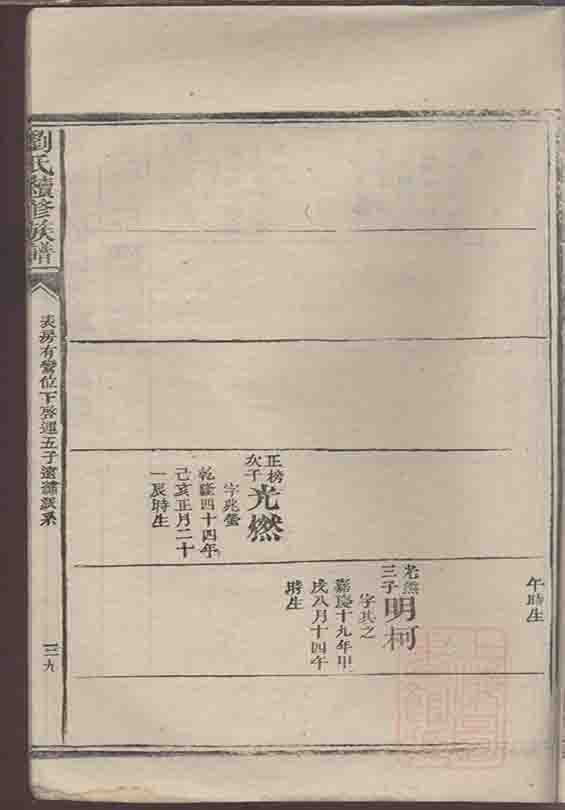 午時生
光熊
三子
明柯
字其之
嘉慶十九年甲
戌八月十四午
時生
正榜
次子
光燃
字兆螢
乾隆四十四年
己亥正月二十
一辰時生
劉氏續修族譜
表房有鸞位下啓運五子遠
派系
三九